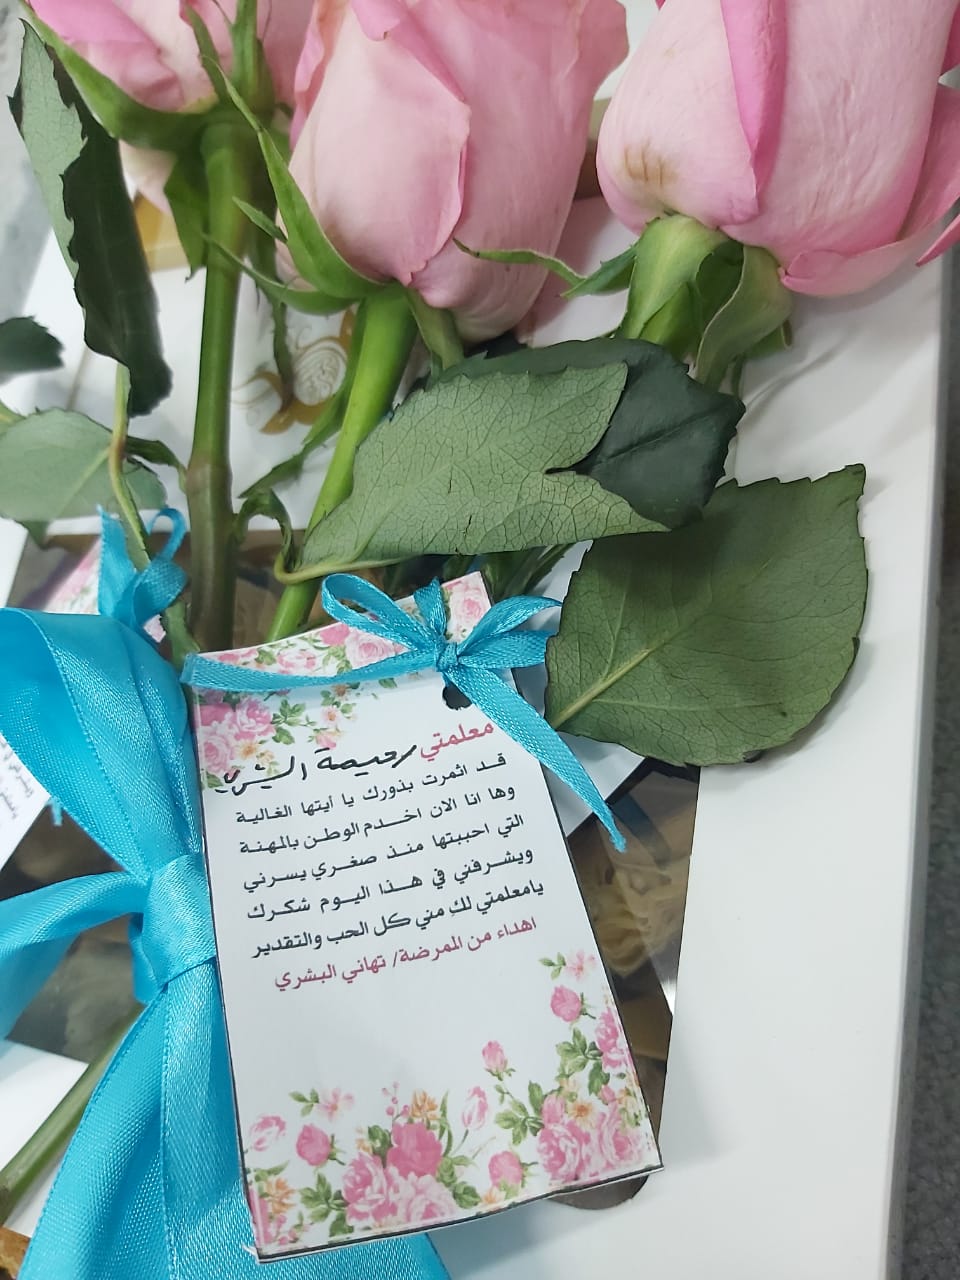 معلمتي رحيمة البشري
قد اثمرت بذورك يا أيتها الغالية
وها انا الان اخدم الوطن بالمهنة
التي احببتها منذ صغري يسرني
ويشرفني في هذا اليوم شكرك
يامعلمتي لكِ مني كل الحب والتقدير
اهداء من الممرضة/ تهاني البشري